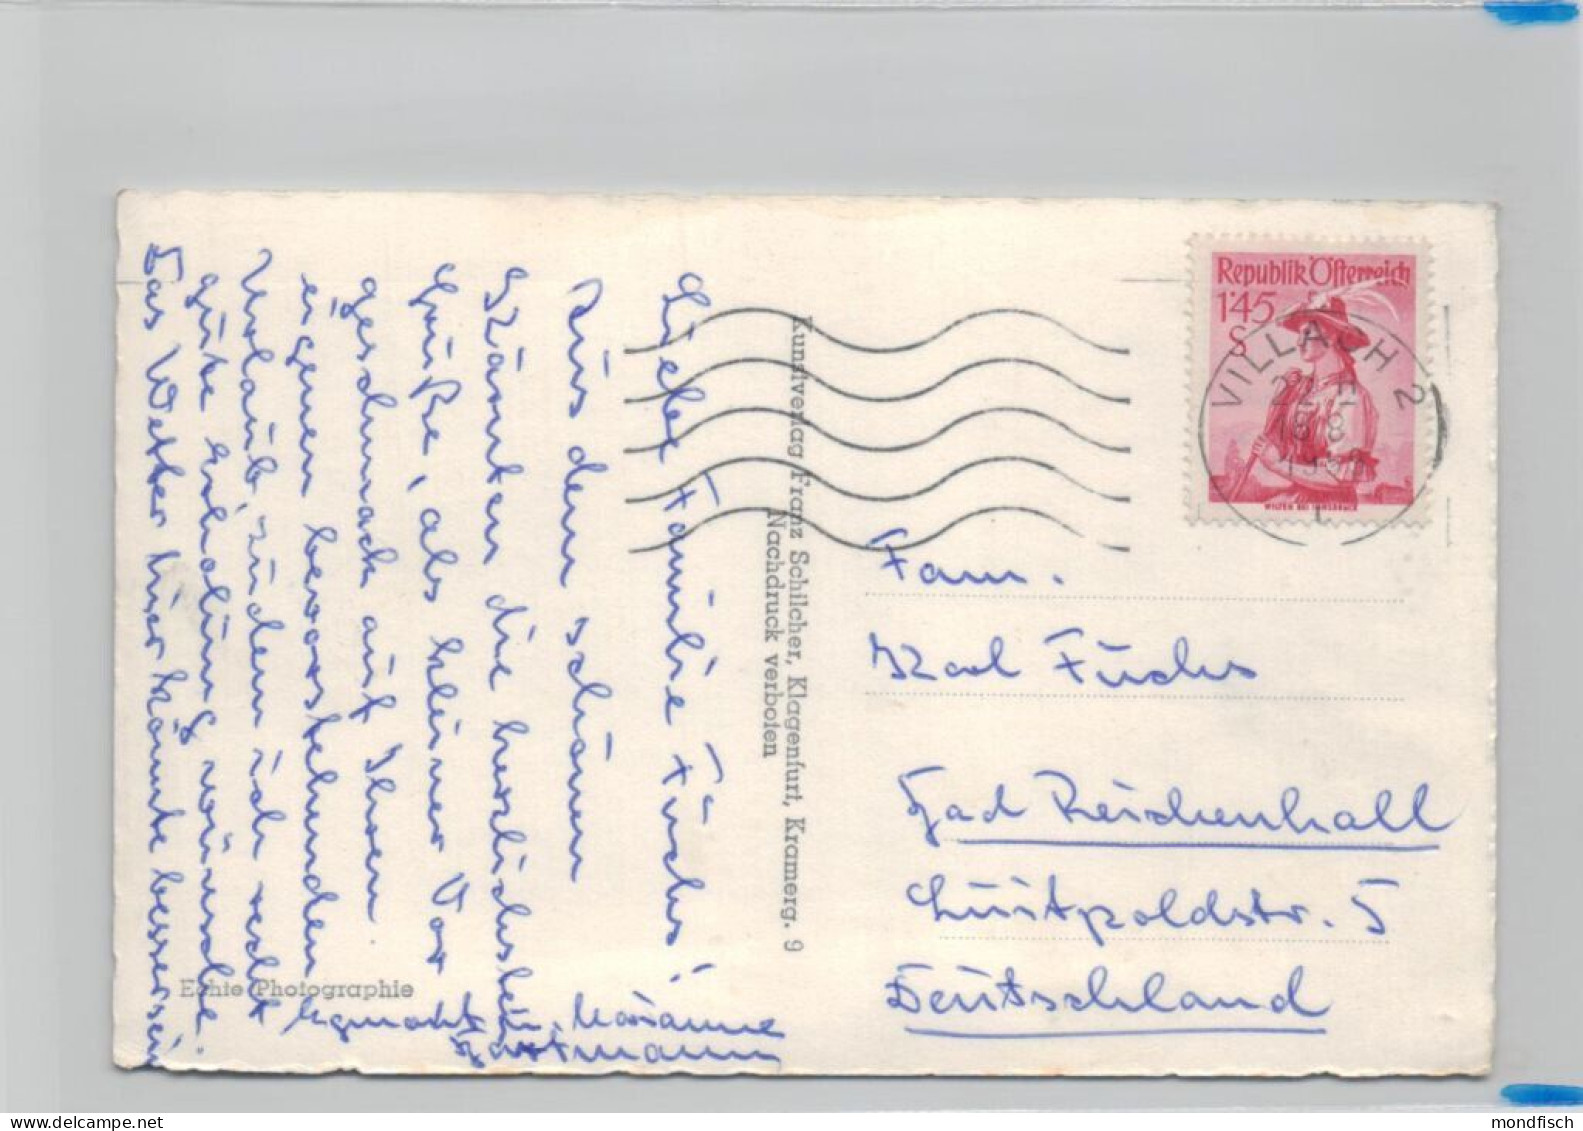 Liebe Familie Fuchs!
Aus dem schönen
Kärnten die herzlichsten
Grüße, als kleiner Vor
geschmack auf Ihren
eigenen bevorstehenden
Urlaub, zudem ich recht
gute Erholung wünsche.
Das Wetter hier könnte besser sein
Marianne
Hartmann
Echte Photographie
Kunstverlag Franz Schilcher, Klagenfurt, Kramerg. 9
Nachdruck verboten
Republik Österreich
1'45
S
WILTEN BEI INNSBRUCK
VILLACH 2
Fam.
Karl Fuchs
Bad Reichenhall
Luitpoldstr. 5
Deutschland
mondfisch